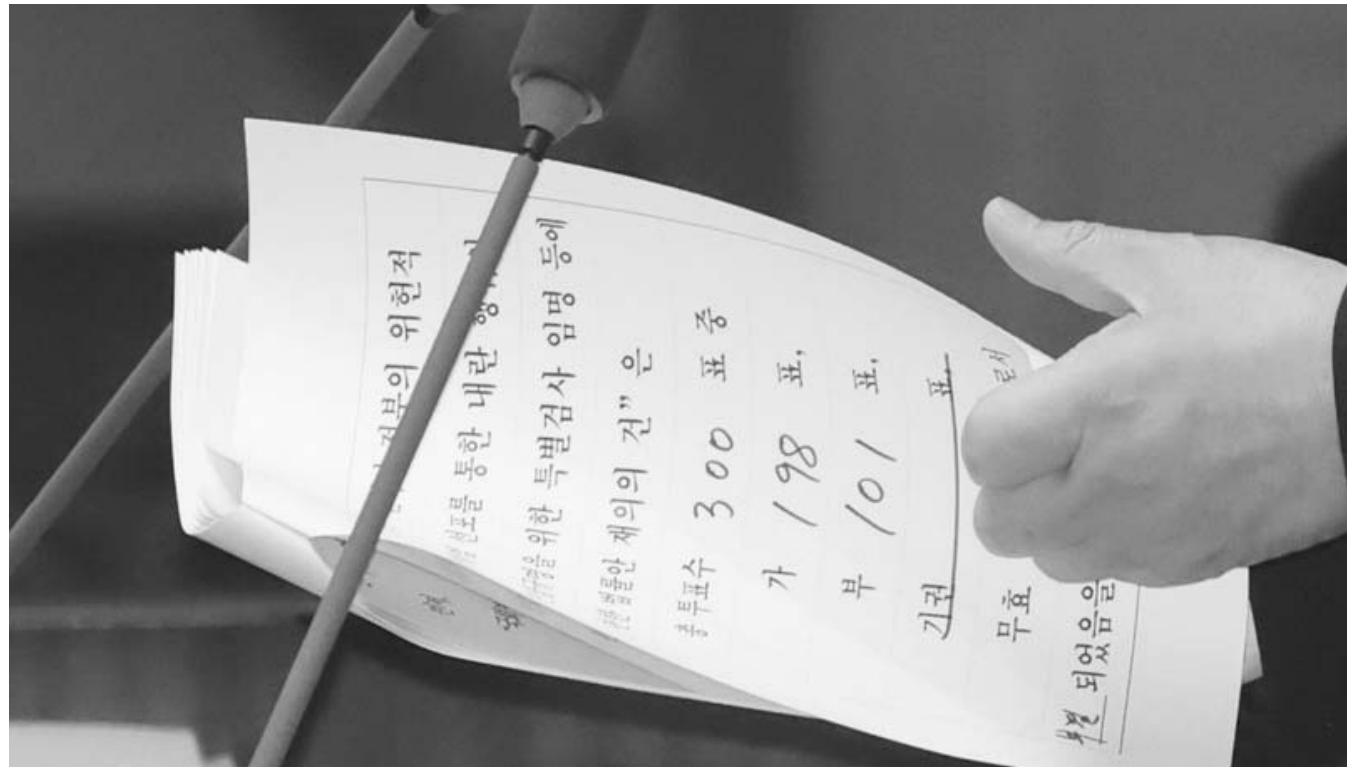 정부의 위헌적
통한 내란
위한 특별검사 임명 등에
법률안 재의의 건” 은
총투표수 300 표 중
가 198 표,
부 101 표,
기권 표,
무효 로서
부결 되었음을